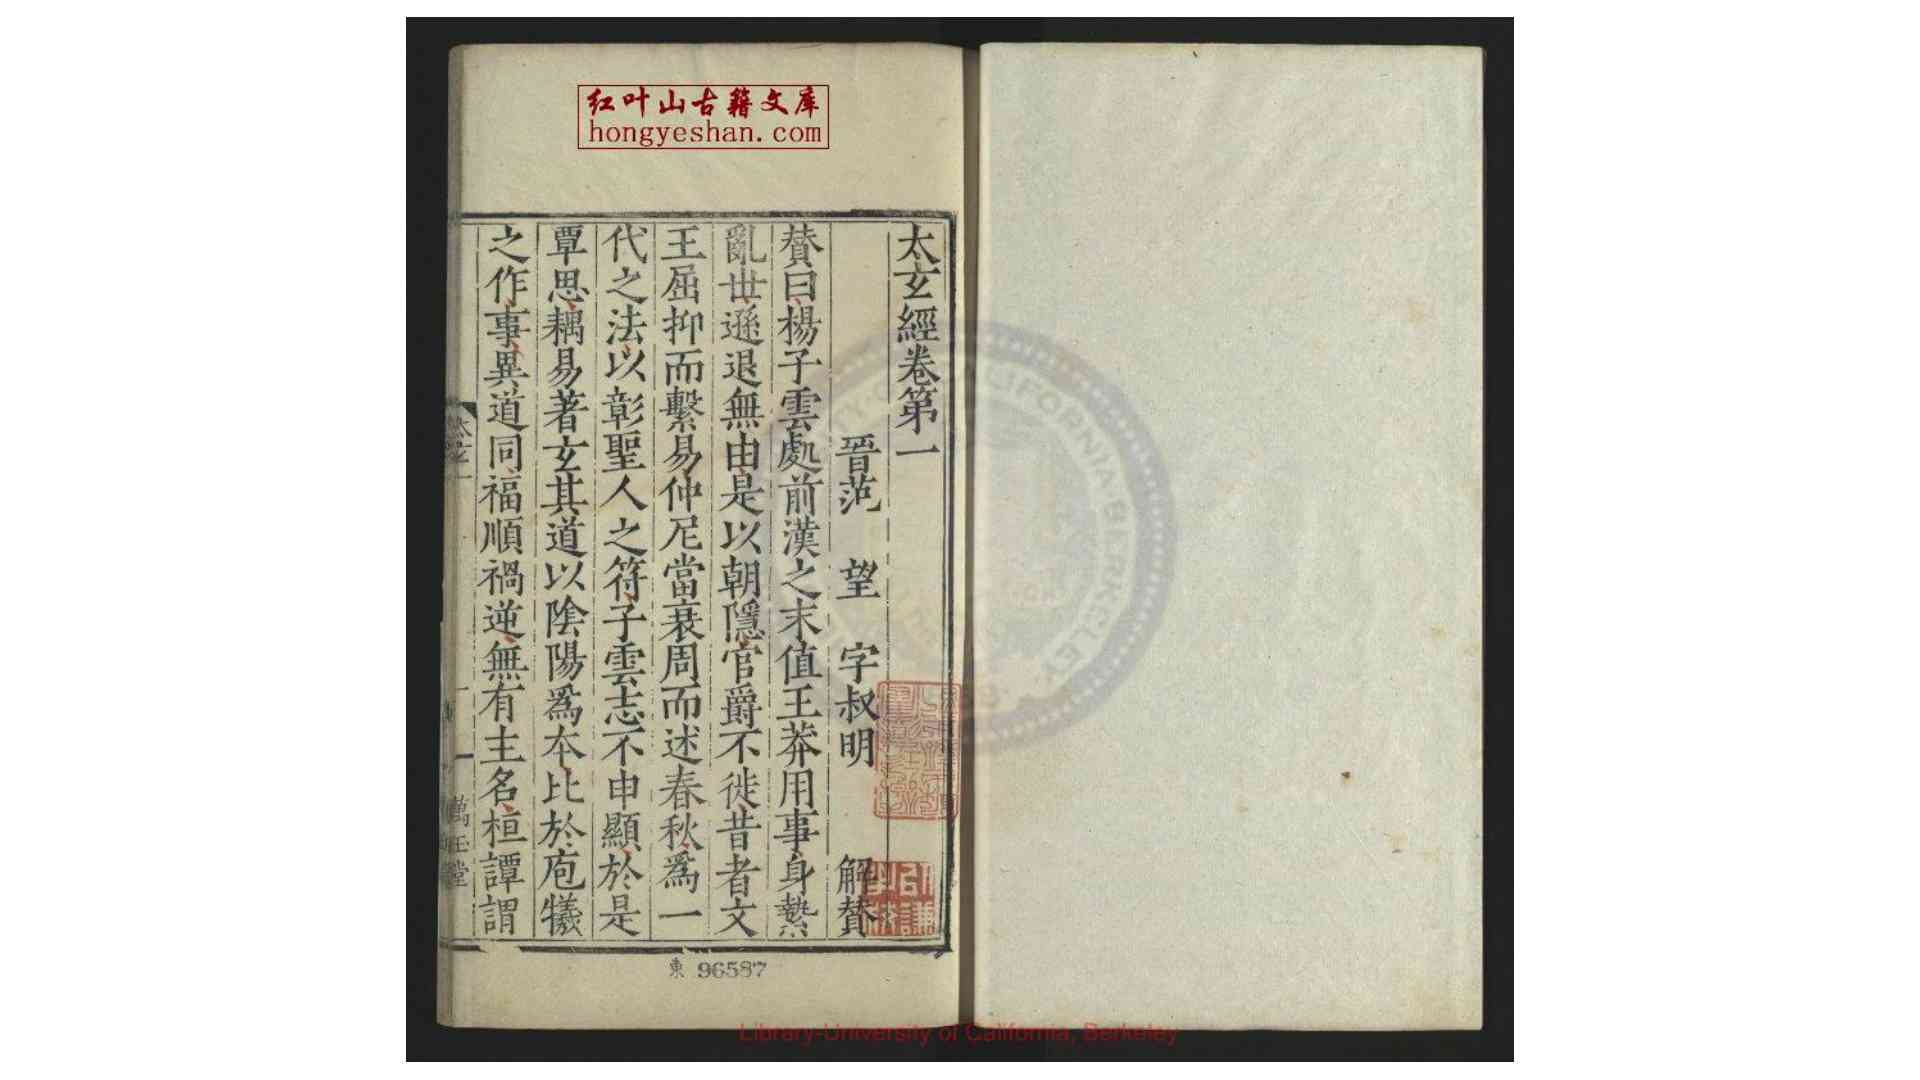 红叶山古籍文库
hongyeshan.com
太玄經卷第一
晉范 望 字叔明 解贊
贊曰揚子雲處前漢之末值王莽用事身縶
亂世遜退無由是以朝隱官爵不徙昔者文
王屈抑而繫易仲尼當衰周而述春秋爲一
代之法以彰聖人之符子雲志不申顯於是
覃思耦易著玄其道以陰陽爲本比於庖犧
之作事異道同福順禍逆無有主名桓譚謂
萬玉堂
東 96587
Library-University of California, Berkeley